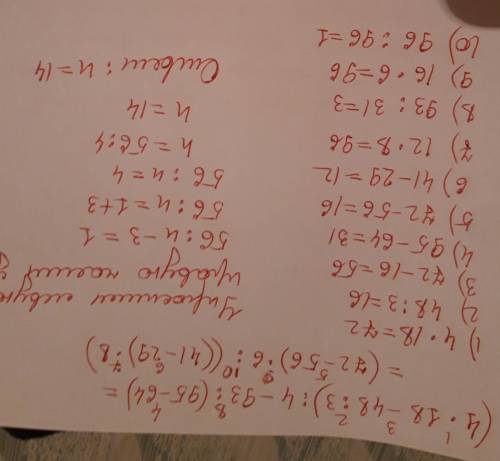 (4 · 18 - 48 : 3) : n - 93 : (95-64) =
= (72-56) · 6 : ((41-29) · 8)
1) 4 · 18 = 72
2) 48 : 3 = 16
3) 72-16 = 56
4) 95-64 = 31
5) 72-56 = 16
6) 41-29 = 12
7) 12 · 8 = 96
8) 93 : 31 = 3
9) 16 · 6 = 96
10) 96 : 96 = 1
Упростим левую
правую части
56 : n - 3 = 1
56 : n = 1+3
56 : n = 4
n = 56 : 4
n = 14
Ответ : n = 14